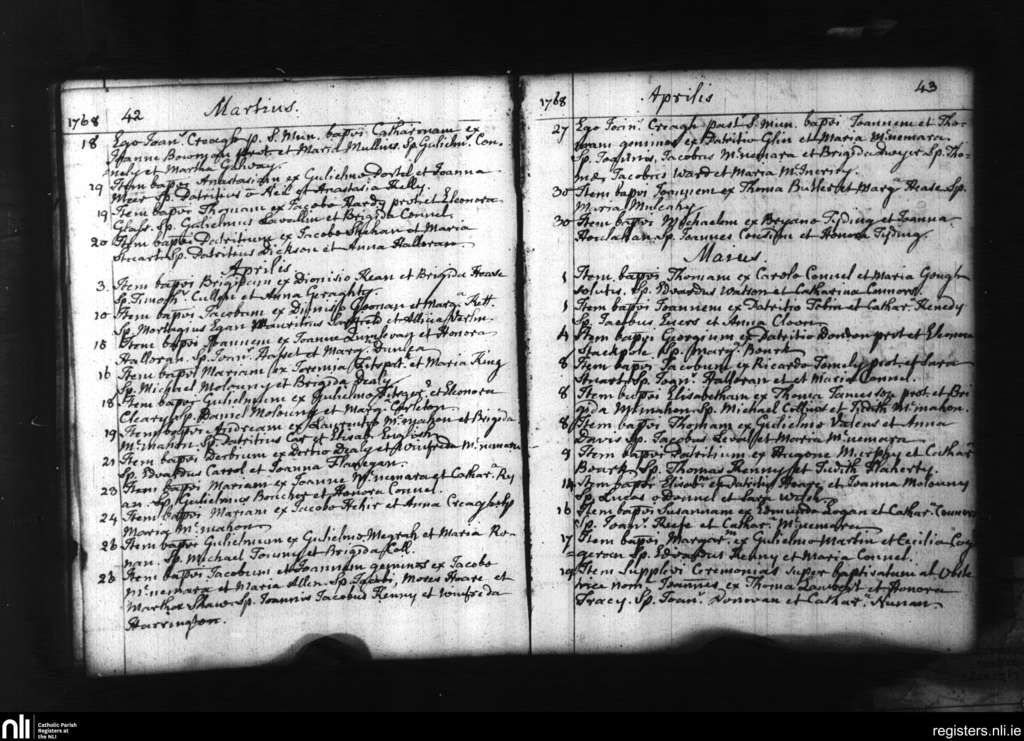 1768 42 Martius.
18 Ego Joan. Creagh p. S. Mun. bapvi Catharinam ex
Joanne Bowman prot. et Maria Mullins, Sp. Gulielm. Con-
nely et Martha Galway.
19 Item bapvi Anastasiam ex Gulielmo et Joanna
Meer Sp. Patritius o Neil et Anastasia Kelly.
19 Item bapvi Thomam ex Jacobo Hardy prot. et Eleonora
Glass. Sp. Gulielmus Lavallin et Brigida Connel.
20 Item bapvi Patritium ex Jacobo Shehan et Maria
Stuart Sp. Patritius Dickson et Anna Halloran.
Aprilis
3. Item bapvi Brigidam ex Dionisio Rean et Brigida
Sp. Timoth. Cullin et Anna Geraghty.
10 Item bapvi Jacobum ex Dionisio Noonan et Marg.
Sp. Mortogius Egan Mauritius et Martin.
15 Item bapvi Joannem ex Joanne et Honora
Halloran. Sp. Joan. et Marg. Hunter
16 Item bapvi Mariam ex Jeremia Fitspat. et Maria King
Sp. Michael Molouny et Brigida Dealy
18 Item bapvi Gulielmum ex Gulielmo et Eleonora
Cleary Sp. Daniel Molouny et Marg. Carleton.
19 Item bapvi Andream ex Laurentio Mc.mahon et Brigida
Mc.mahon Sp. Patritius Cox et Elisab. English
21 Item bapvi ex Dealy et Winifrida Mc.nemara
Sp. Edvardus Carrol et Joanna Flanegan.
23 Item bapvi Mariam ex Joanne Mc.nemara et Cathar. Ry
an. Sp. Gulielmus Boucher et Honora Connel.
24 Item bapvi Mariam ex Jacobo Hehir et Anna Creagh Sp.
Maria Mc.mahon
26 Item bapvi Gulielmum ex Gulielmo Megrah et Maria Ro-
nan. Sp. Michael et Brigida Coll.
28 Item bapvi Jacobum et Joannem geminos ex Jacobo
Mc.nemara et Maria Allen Sp. Jacobi, Moses Hoare et
Martha Shaw Sp. Joannis Jacobus Kenny et Winifrida
Harrington.
1768 Aprilis 43
27 Ego Joan. Creagh past. S. Mun. bapvi Joannem et Tho-
mam geminos ex Patritio Glin et Maria Mc.nemara.
Sp. Joannis, Jacobus Mc.nemara et Brigida Dwyer Sp. Tho-
mae Jacobus Ward et Maria Mc.Inerny.
30 Item bapvi Joannem ex Thoma Butler et Marg. Hease Sp.
Maria Mulcahy
30 Item bapvi Michaelem ex Bryano Tyding et Joanna
Houlahan Sp. Joannes et Honora Tyding.
Maius.
1 Item bapvi Thomam ex Carolo Connel et Maria Gough
solutis. Sp. Edvardus Watson et Catharina Connors.
1 Item bapvi Joannem ex Patritio Tobin et Cathar. Kenedy
Sp. Jacobus et Anna Cloon
4 Item bapvi Georgium ex Patritio Dondon prot. et Elenora
Stackpole. Sp. Marg. Bourk
8 Item bapvi Jacobum ex Ricardo Tomely prot. et Sara
Stuart Sp. Joan. Halloran et Maria Connel.
8 Item bapvi Elisabetham ex Thoma Jameson prot. et Bri
gida Mc.mahon Sp. Michael Collins et Judith Mc.mahon.
8 Item bapvi Thomam ex Gulielmo Valens et Anna
Davis Sp. Jacobus et Maria Mc.nemara
9 Item bapvi Patritium ex Hugone Murphy et Cathar.
Bourk Sp. Thomas Kenny et Judith Flaherty.
14 Item bapvi Elisab. ex Patritio Heary et Joanna Molouny
Sp. Lucas o Donnel et Sara Welsh
16 Item bapvi Susannam ex Edmundo Logan et Cathar. Connors
Sp. Joan. Keefe et Cathar. Mc.nemara
17 Item bapvi Margar. ex Gulielmo Martin et Cecilia Cos
geroen Sp. Edvardus Kenny et Maria Connel.
19 Item supplevi Ceremonias super baptisatum ab Obste
trice nom. Joannes ex Thoma et Honora
Tracy. Sp. Joan. Donovan et Cathar. Nunan
nli Catholic Parish
Registers at
the NLI
registers.nli.ie